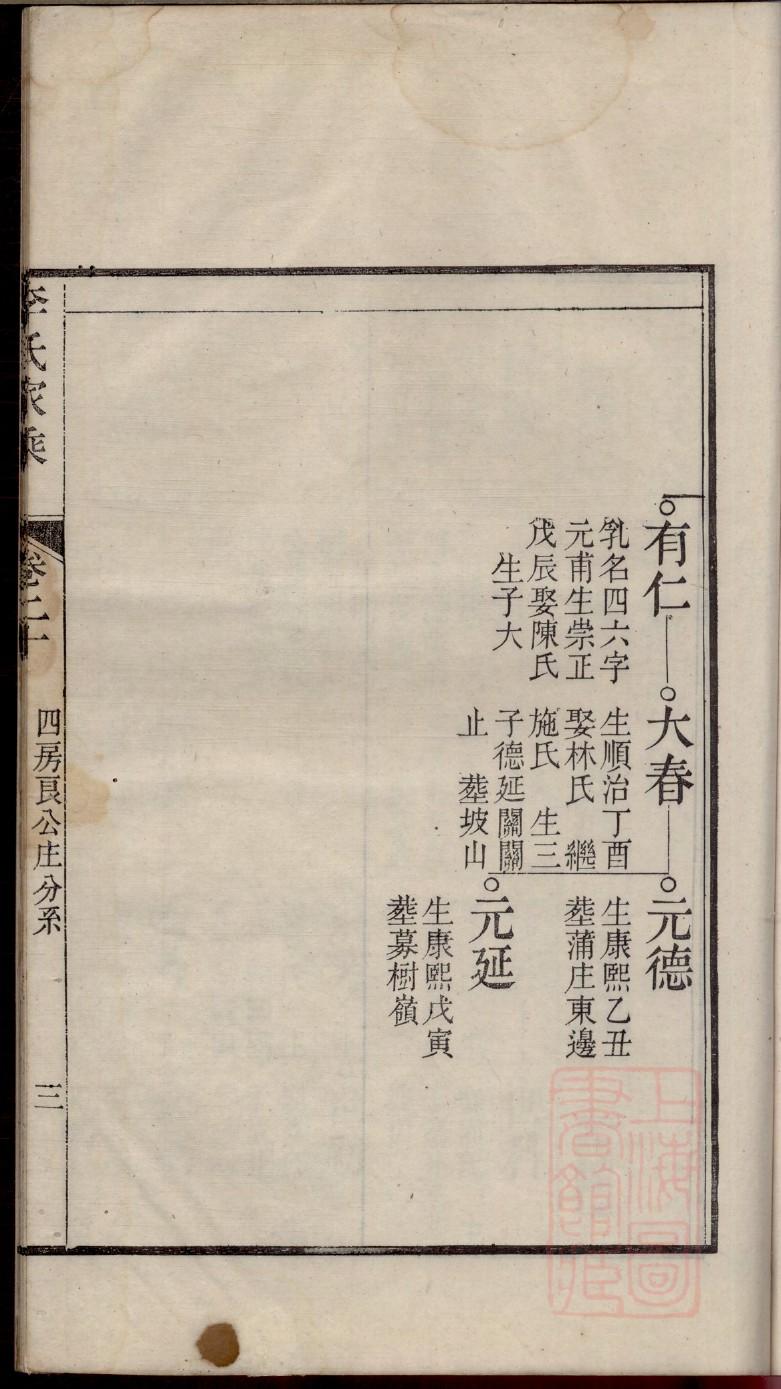 有仁
乳名四六字
元甫生崇正
戊辰娶陳氏
生子大
大春
生順治丁酉
娶林氏 繼
施氏 生三
子德延關關
止 塟坡山
元德
生康熙乙丑
塟蒲庄東邊
元延
生康熙戊寅
塟募樹嶺
李氏家乘
卷二十
四房良公庄分系
三
上海圖
書館藏